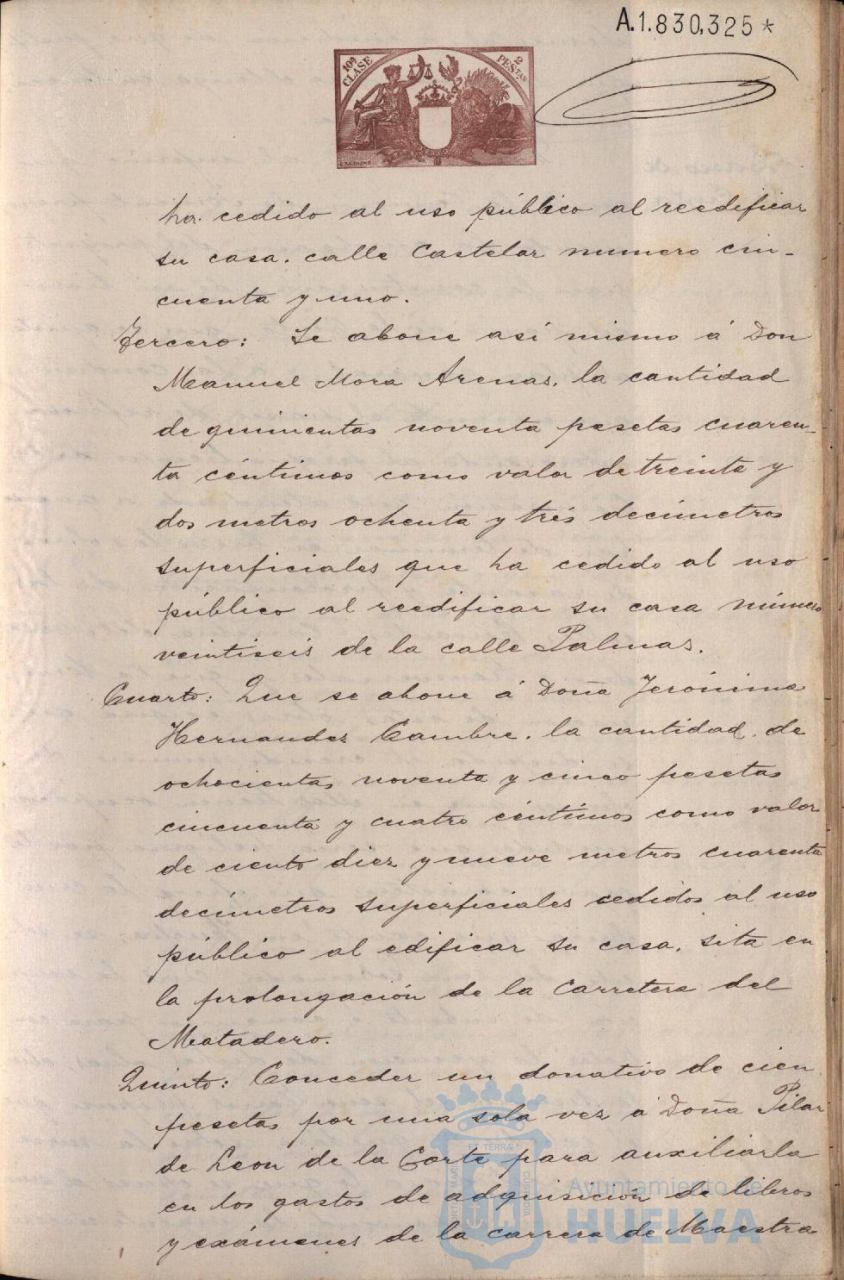 A.1.830,325*
10ª CLASE
2 PESETAS
ha cedido al uso público al reedificar
su casa. calle Castelar numero cin-
cuenta y uno.
Tercero: Se abone así mismo á Don
Manuel Mora Arenas, la cantidad
de quinientas noventa pesetas cuaren-
ta céntimos como valor de treinta y
dos metros ochenta y trés decímetros
superficiales que ha cedido al uso
público al reedificar su casa número
veintiseis de la calle Palmas.
Cuarto: Que se abone á Doña Jerónima
Hernandez Cambre, la cantidad de
ochocientas noventa y cinco pesetas
cincuenta y cuatro céntimos como valor
de ciento diez y nueve metros cuarenta
decímetros superficiales cedidos al uso
público al edificar su casa, sita en
la prolongación de la Carretera del
Matadero.
Quinto: Conceder un donativo de cien
pesetas por una sola vez á Doña Pilar
de Leon de la Corte para auxiliarla
en los gastos de adquisición de libros
y exámenes de la carrera de Maestra
Ayuntamiento de
HUELVA